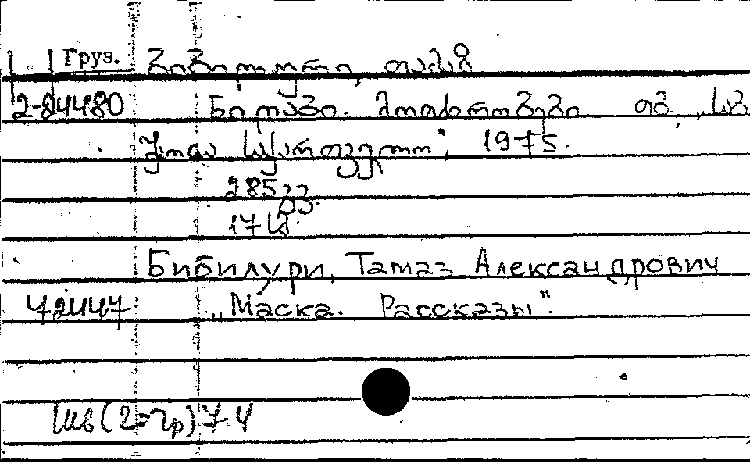 Груз. ბიბილური, თამაზ
2-84480 ნიღაბი. მოთხრობები. თბ., „საბ
ჭოთა საქართველო“, 1975.
285 გვ.
17 ს.
Бибилури, Тамаз Александрович
42447 „Маска. Рассказы".
Шв(2=гр)7.4